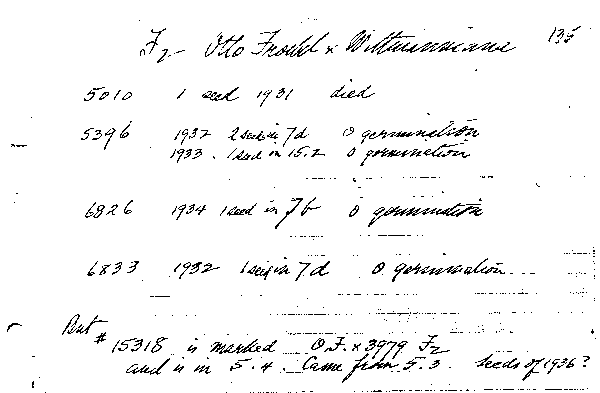 F2 - Otto Froebel x Wittmanniana 135
5010 1 seed 1931 died
5396 1932 2 seed in 7d 0 germination
1933. 1 seed in 15.2 0 germination
6826 1934 1 seed in 7b 0 germination
6833 1932 1 seed in 7d 0 germination
But
# 15318 is marked O.F. x 3979 F2
and is in 5.4. Came from 5.3. Seeds of 1936?